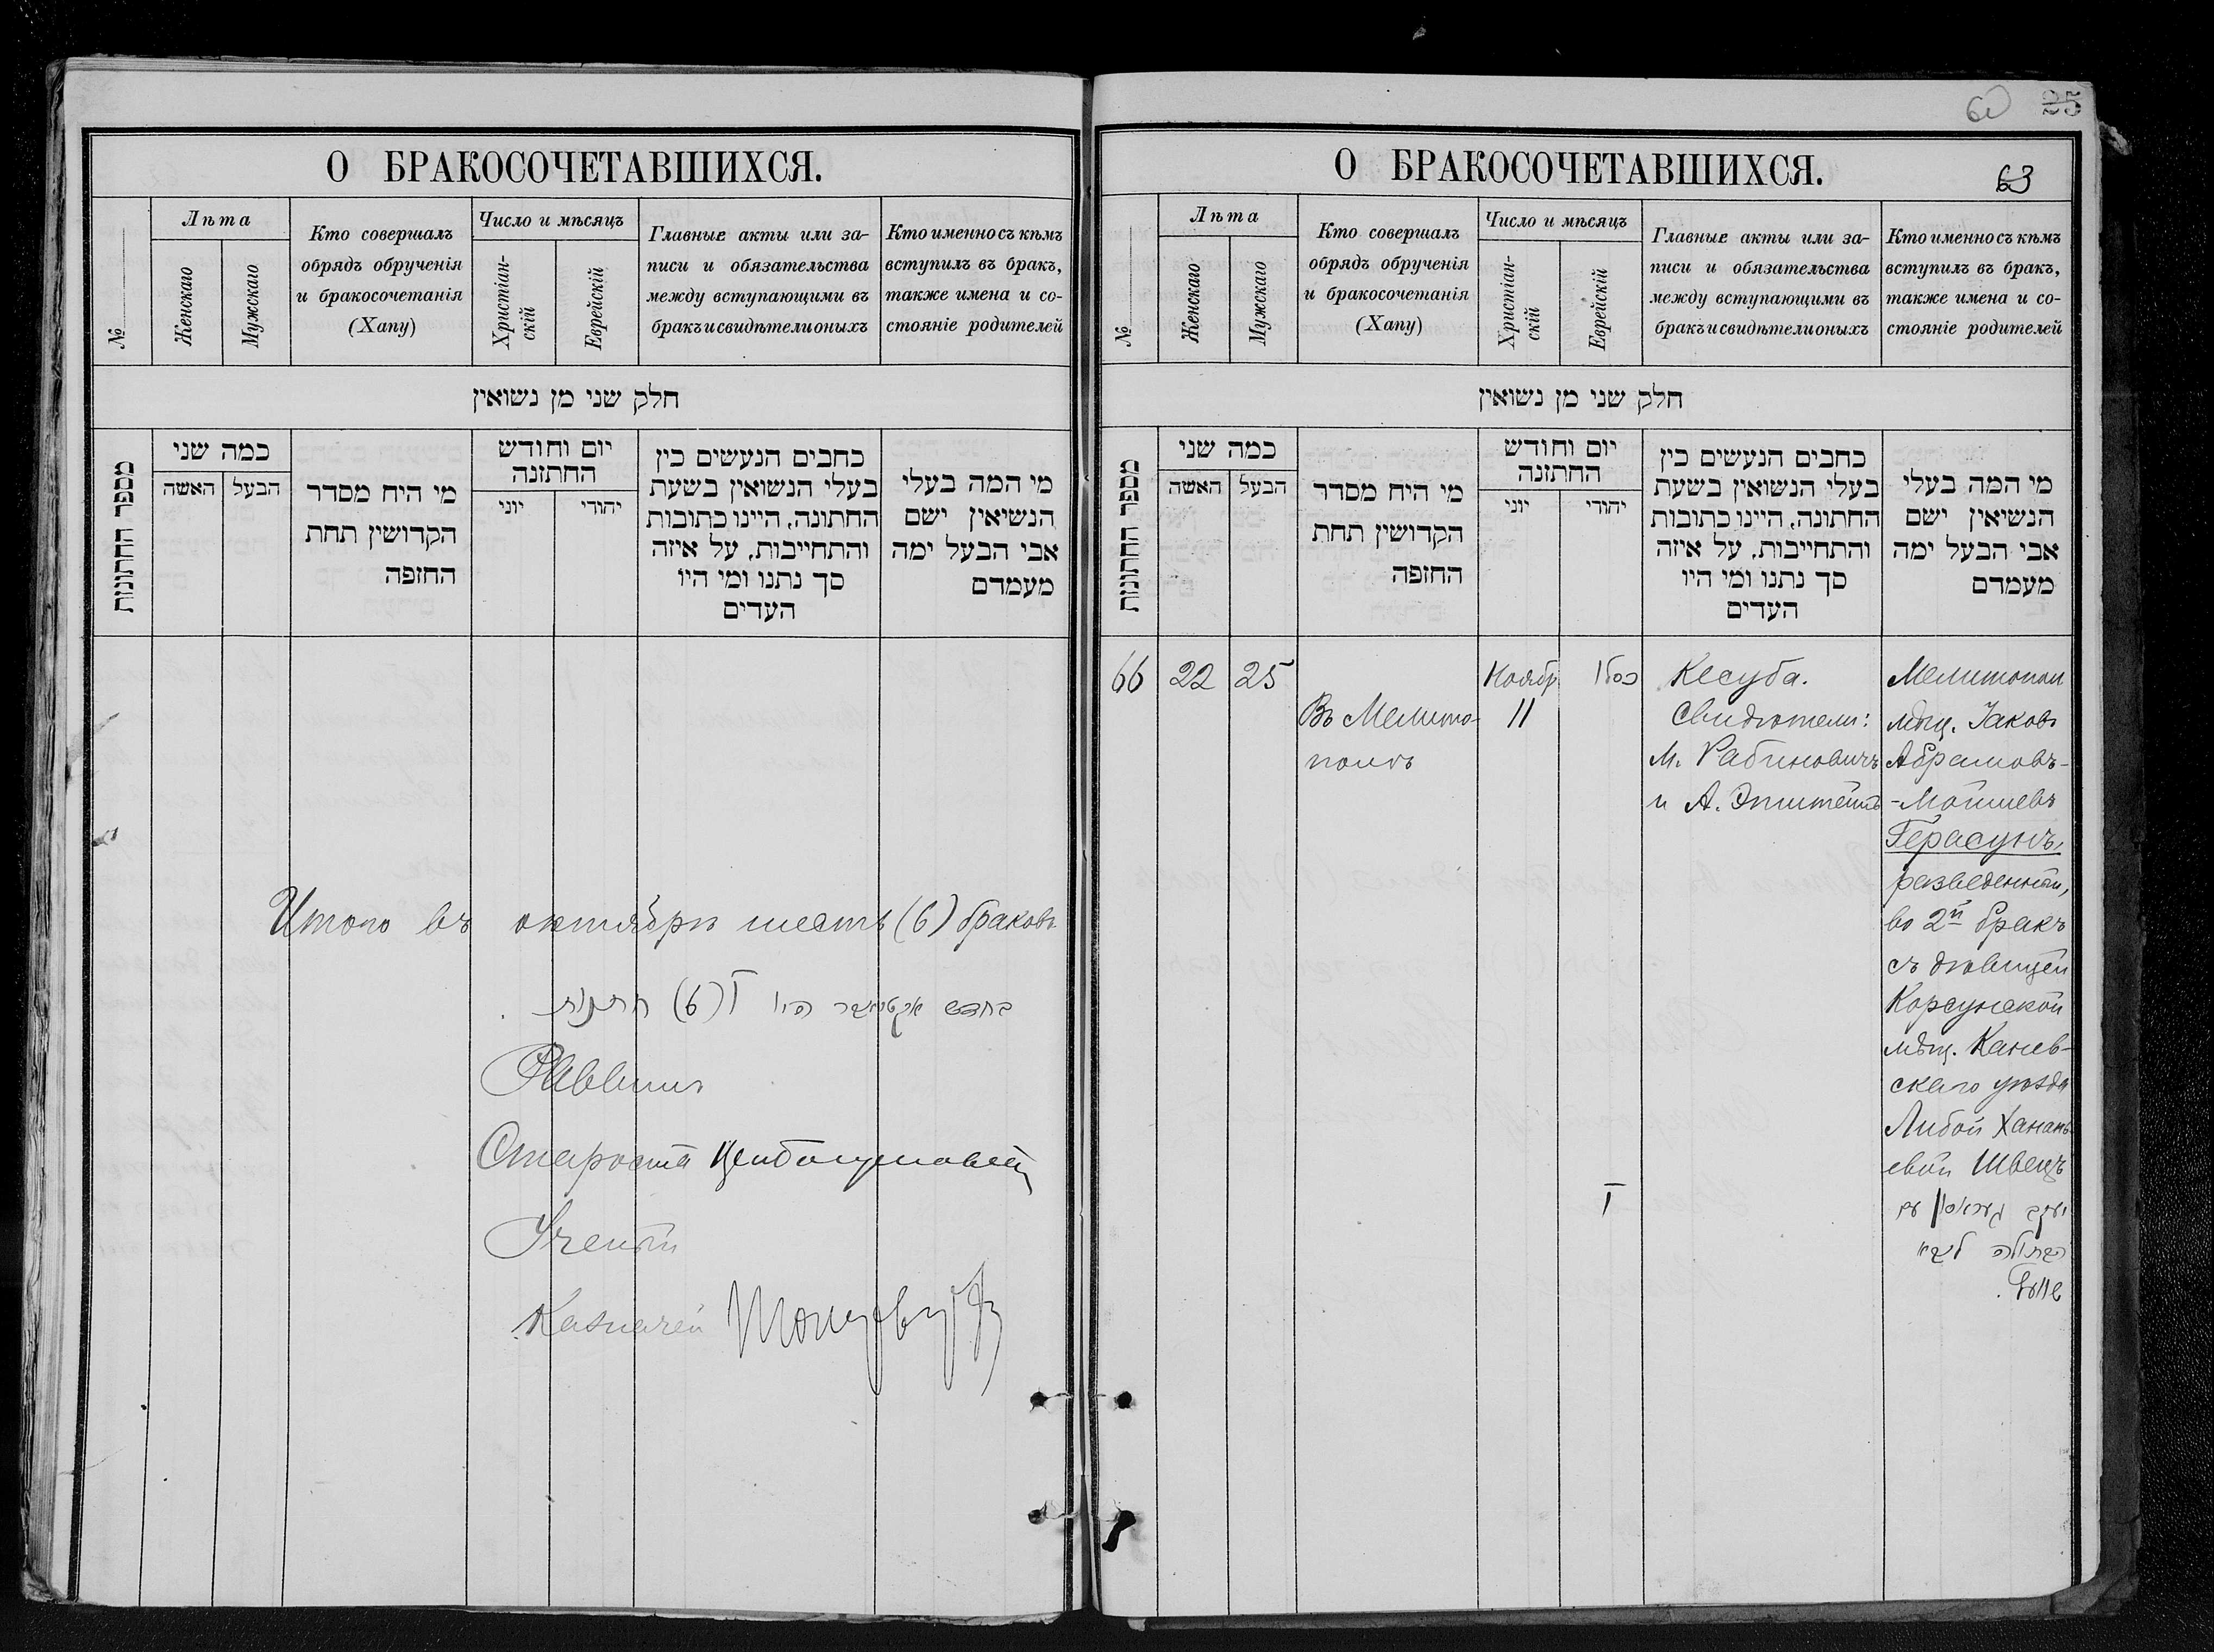 О БРАКОСОЧЕТАВШИХСЯ.
№
Лѣта
Женскаго
Мужскаго
Кто совершалъ
обрядъ обрученія
и бракосочетанія
(Хапу)
Число и мѣсяцъ
Христіан-
скій
Еврейскій
Главные акты или за-
писи и обязательства
между вступающими въ
бракъ и свидѣтели оныхъ
Кто именно съ кѣмъ
вступилъ въ бракъ,
также имена и со-
стояніе родителей
חלק שני מן נשואין
מספר החתונות
כמה שני
האשה
הבעל
מי היח מסדר
הקדושין תחת
החופה
יום וחודש
החתונה
יוני
יהודי
כחבים הנעשים כין
בעלי הנשואין בשעת
החתונה, היינו כתובות
והתחייבות, על איזה
סך נתנו ומי היו
העדים
מי המה בעלי
הנשיאין ישם
אבי הבעל ימה
מעמדם
Итого въ октябрѣ шесть (6) браковъ
בחדש אקטיאבר היו ו (6) חתונות
Раввинъ
Староста
Ученый
Казначей
60 25
О БРАКОСОЧЕТАВШИХСЯ.
63
№
Лѣта
Женскаго
Мужскаго
Кто совершалъ
обрядъ обрученія
и бракосочетанія
(Хапу)
Число и мѣсяцъ
Христіан-
скій
Еврейскій
Главные акты или за-
писи и обязательства
между вступающими въ
бракъ и свидѣтели оныхъ
Кто именно съ кѣмъ
вступилъ въ бракъ,
также имена и со-
стояніе родителей
חלק שני מן נשואין
מספר החתונות
כמה שני
האשה
הבעל
מי היח מסדר
הקדושין תחת
החופה
יום וחודש
החתונה
יוני
יהודי
כחבים הנעשים כין
בעלי הנשואין בשעת
החתונה, היינו כתובות
והתחייבות, על איזה
סך נתנו ומי היו
העדים
מי המה בעלי
הנשיאין ישם
אבי הבעל ימה
מעמדם
66
22
25
Въ Мелито-
полѣ
Ноябр
11
כסלו
ו
Кесуба.
Свидѣтели:
М. Рабиновичъ
и А. Эпштейнъ
Мелитопол
мѣщ. Іаковъ
Абрамовъ-
-Мошиевъ
Герасунъ,
разведенный,
во 2й бракъ
съ дѣвицей
Корсунской
мѣщ. Канев-
скаго уѣзда
Либой Ханань-
евой Швецъ
יעקב געראסון עם
הבתולה ליבא
שוועץ.